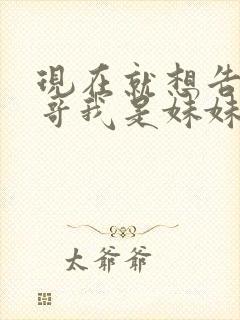 現在就想告
哥我是妹妹
太爺爺